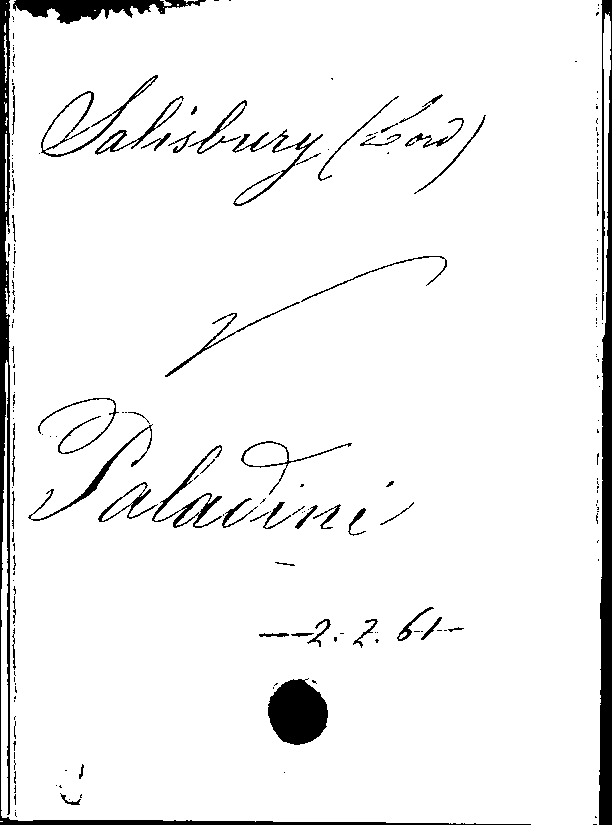 Salisbury (Lord)
v
Paladini
—2.2.61—